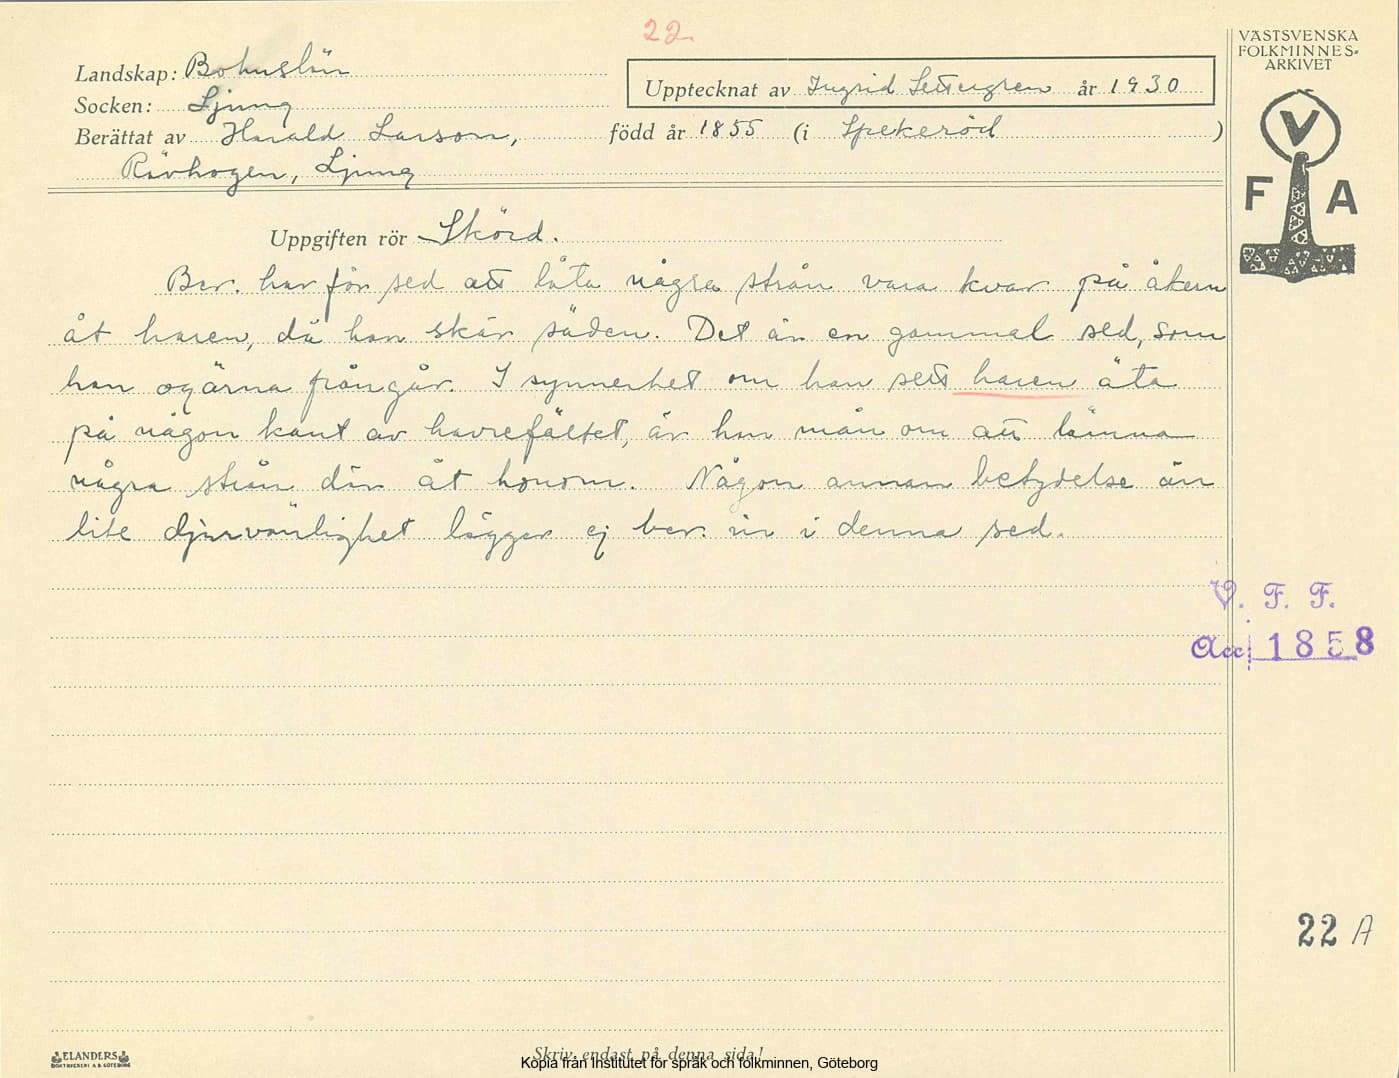 22.
VÄSTSVENSKA
FOLKMINNES-
ARKIVET
Landskap: Bohuslän
Upptecknat av Ingrid Settergren år 1930
Socken: Ljung
Berättat av Harald Larson, född år 1855 (i Spekeröd )
Rävhogen, Ljung
V
F A
Uppgiften rör Skörd.
Ber. har för sed att låta några strån vara kvar på åkern
åt haren, då han skär säden. Det är en gammal sed, som
han ogärna frångår. I synnerhet om han sett haren äta
på någon kant av havrefältet, är han mån om att lämna
några strån där åt honom. Någon annan betydelse än
lite djurvänlighet lägger ej ber. in i denna sed.
V. F. F.
Acc. 1858
22 A
ELANDERS
BOKTRYCKERI A.B. GÖTEBORG
Skriv endast på denna sida!
Kopia från Institutet för språk och folkminnen, Göteborg